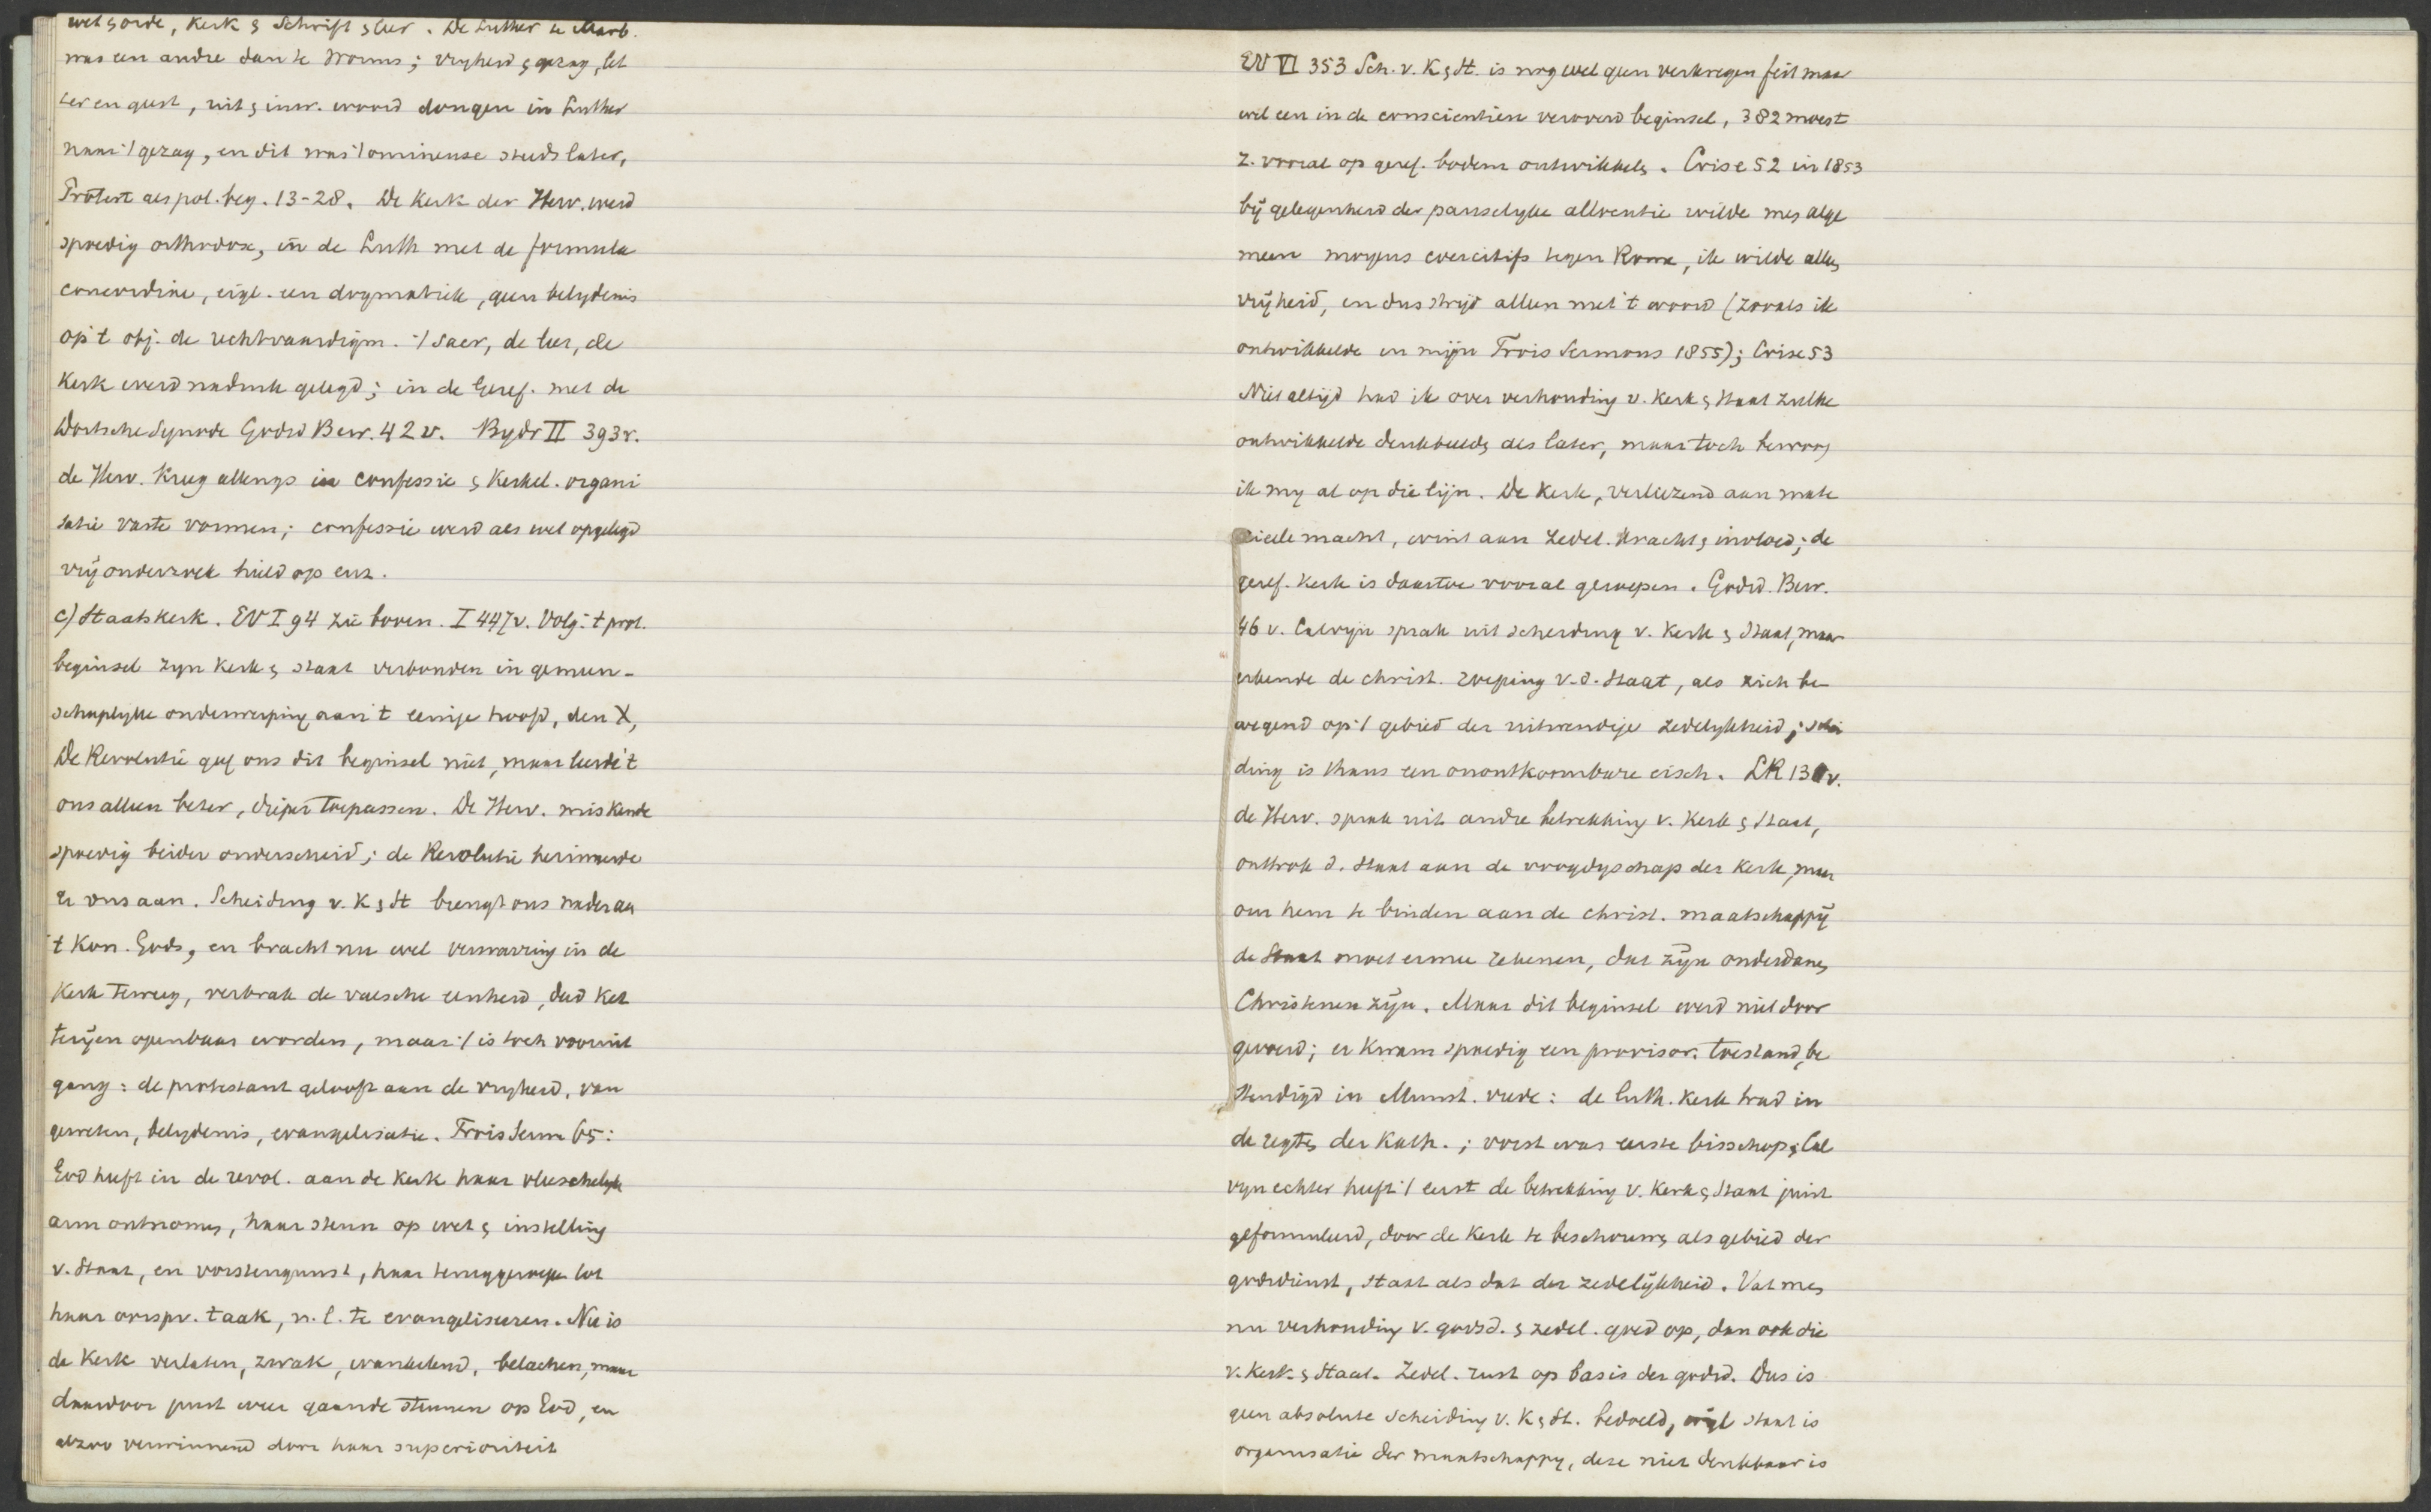 wet & orde, Kerk & Schrift & leer. De Luther te Marb.
was een andre dan te Worms; vryheid & gezag, let
ter en geest, uit & inw. woord dongen in Luther
naar 't gezag, en dit was 't omineuse steeds later,
Protest als pol. beg. 13-28. De Kerk der Herv. werd
spoedig orthodox, in de Luth met de formula
concordiae, eigl. een dogmatiek, geen belydenis
op 't obj. de rechtvaardigm. 't sacr, de leer, de
Kerk werd nadruk gelegd; in de Geref. met de
Dortsche Synode Godsd Bew. 42 v. Bydr II 393 v.
de Herv. kreeg allengs in confessie & Kerkel. organi
satie vaste vormen; confessie werd als wet opgelegd
vrij onderzoek hield op enz.
c) Staatskerk. EV I 94 zie boven. I 447 v. Volg. 't prot.
beginsel zyn Kerk & staat verbonden in gemeen-
schaplyke onderwerping aan 't eenige hoofd, den X,
De Revolutie gaf ons dit beginsel niet, maar leerde 't
ons alleen beter, dieper toepassen. De Herv. miskende
spoedig beider onderscheid; de Revolutie herinnerde
er ons aan. Scheiding v. K & St brengt ons nader aan
't Kon. Gods, en bracht nu wel verwarring in de
Kerk teweeg, verbrak de valsche eenheid, deed ket
teryen openbaar worden, maar 't is toch vooruit
gang: de protestant gelooft aan de vryheid, van
geweten, belydenis, evangelisatie. Trois Serm 65:
God heeft in de revol. aan de Kerk haar vleeschelyke
arm ontnomen, haar steun op wet & instelling
v. Staat, en vorstengunst, haar teruggeroepen tot
haar oorspr. taak, n.l. te evangeliseeren. Nu is
de Kerk verlaten, zwak, wankelend, belachen, maar
daardoor juist weer gaande steunen op God, en
alzoo verwinnend door haar superioriteit
EV VI 353 Sch. v. K & St. is nog wel geen verkregen feit maar
wel een in de conscientien veroverd beginsel, 382 moest
z. vooral op geref. bodem ontwikkelen. Crise 52 in 1853
bij gelegenheid der pauselyke allocutie wilde men alge
meen moyens coercitifs tegen Rome, ik wilde alle
vrijheid, en dus strijd alleen met 't woord (zooals ik
ontwikkelde in mijn Trois Sermons 1855); Crise 53
Niet altijd had ik over verhouding v. Kerk & Staat zulke
ontwikkelde denkbeelden als later, maar toch bewoog
ik my al op die lijn. De Kerk, verliezend aan mate
rieele macht, wint aan zedel. kracht & invloed; de
geref. Kerk is daartoe vooral geroepen. Godsd. Bew.
46 v. Calvyn sprak uit scheiding v. Kerk & Staat, maar
erkende de christ. roeping v. d. Staat, als zich be
wegend op 't gebied der uitwendige zedelykheid; schei
ding is thans een onontkoombare eisch. LR 13 v.
de Herv. sprak uit andre betrekking v. Kerk & Staat,
onttrok d. Staat aan de voogdyschap der Kerk, maar
om hem te binden aan de christ. maatschappij
de Staat moet ermee rekenen, dat zijn onderdanen
Christenen zijn. Maar dit beginsel werd niet door
gevoerd; er kwam spoedig een provisor. toestand, be
stendigd in Munst. vrede: de luth. Kerk trad in
de regten der Kath.; vorst was eerste bisschop; Cal
vyn echter heeft 't eerst de betrekking v. Kerk & Staat juist
geformuleerd, door de Kerk te beschouwen als gebied der
godsdienst, staat als dat der zedelijkheid. Vat men
nu verhouding v. godsd. & zedel. goed op, dan ook die
v. Kerk & Staat. Zedel. rust op basis der godsd. Dus is
geen absolute scheiding v. K & St. bedoeld, wijl staat is
organisatie der maatschappy, deze niet denkbaar is